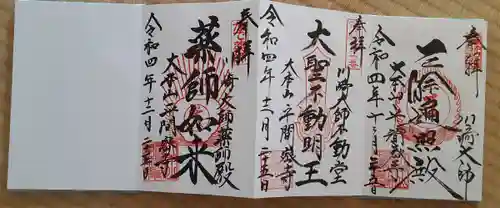 奉拝
川崎大師
三際遍照殿
令和四年十二月二十五日
大本山平間寺
奉拝
川崎大師不動堂
大聖不動明王
大本山平間寺
令和四年十二月二十五日
奉拝
川崎大師薬師殿
薬師如来
大本山平間寺
令和四年十二月二十五日